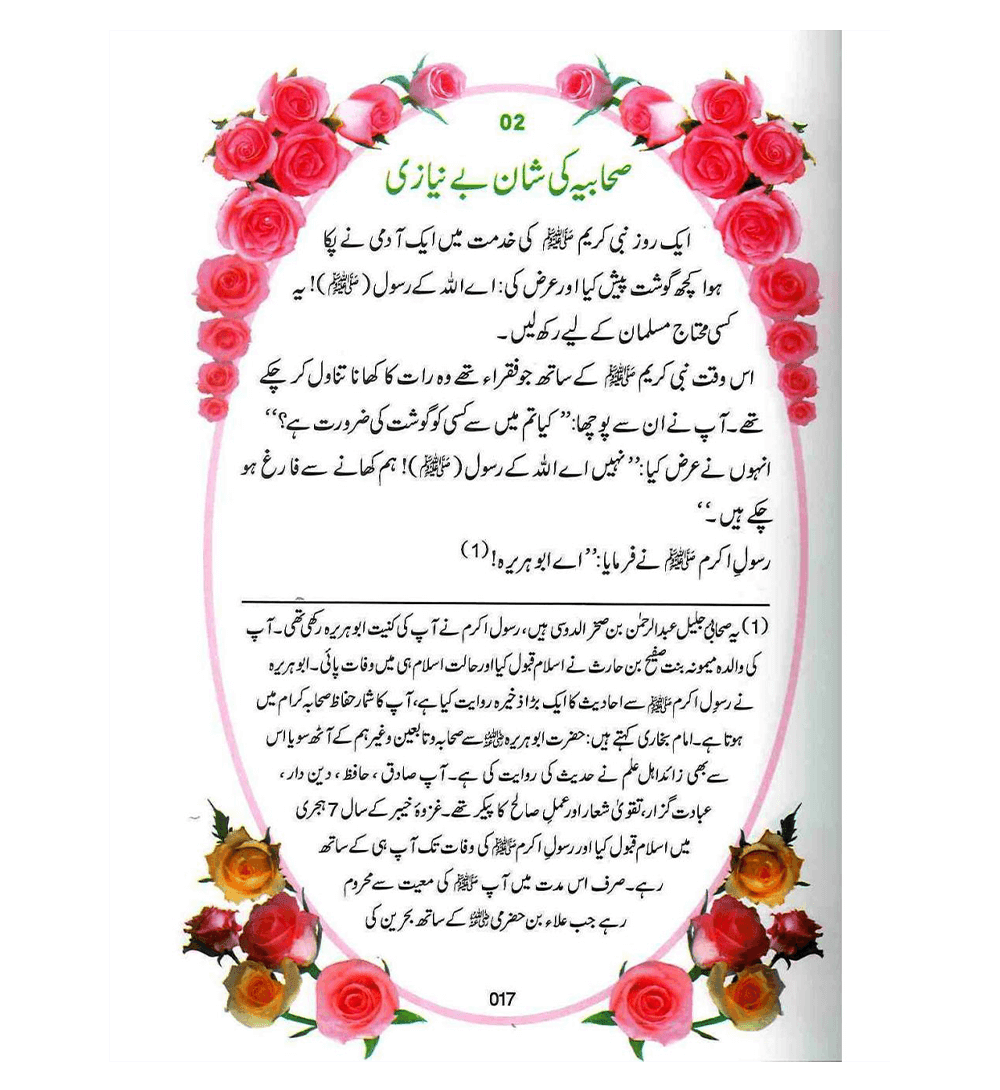 02
صحابیہ کی شان بے نیازی
ایک روز نبی کریم ﷺ کی خدمت میں ایک آدمی نے پکا
ہوا کچھ گوشت پیش کیا اور عرض کی: اے اللہ کے رسول (ﷺ)! یہ
کسی محتاج مسلمان کے لیے رکھ لیں۔
اس وقت نبی کریم ﷺ کے ساتھ جو فقراء تھے وہ رات کا کھانا تناول کر چکے
تھے۔ آپ نے ان سے پوچھا: ’’کیا تم میں سے کسی کو گوشت کی ضرورت ہے؟‘‘
انہوں نے عرض کیا: ’’نہیں اے اللہ کے رسول (ﷺ)! ہم کھانے سے فارغ ہو
چکے ہیں۔‘‘
رسولِ اکرم ﷺ نے فرمایا: ’’اے ابو ہریرہ! (1)
(1) یہ صحابیٔ جلیل عبدالرحمٰن بن صخر الدوسی ہیں، رسول اکرم نے آپ کی کنیت ابو ہریرہ رکھی تھی۔ آپ
کی والدہ میمونہ بنت صفیح بن حارث نے اسلام قبول کیا اور حالت اسلام ہی میں وفات پائی۔ ابو ہریرہ
نے رسول اکرم ﷺ سے احادیث کا ایک بڑا ذخیرہ روایت کیا ہے، آپ کا شمار حفاظ صحابہ کرام میں
ہوتا ہے۔ امام بخاری کہتے ہیں: حضرت ابو ہریرہ رضی اللہ عنہ سے صحابہ و تابعین وغیرہم کے آٹھ سو یا اس
سے بھی زائد اہل علم نے حدیث کی روایت کی ہے۔ آپ صادق ، حافظ ، دین دار ،
عبادت گزار، تقویٰ شعار اور عملِ صالح کا پیکر تھے۔ غزوۂ خیبر کے سال 7 ہجری
میں اسلام قبول کیا اور رسولِ اکرم ﷺ کی وفات تک آپ ہی کے ساتھ
رہے۔ صرف اس مدت میں آپ ﷺ کی معیت سے محروم
رہے جب علاء بن حضرمی رضی اللہ عنہ کے ساتھ بحرین کی
017